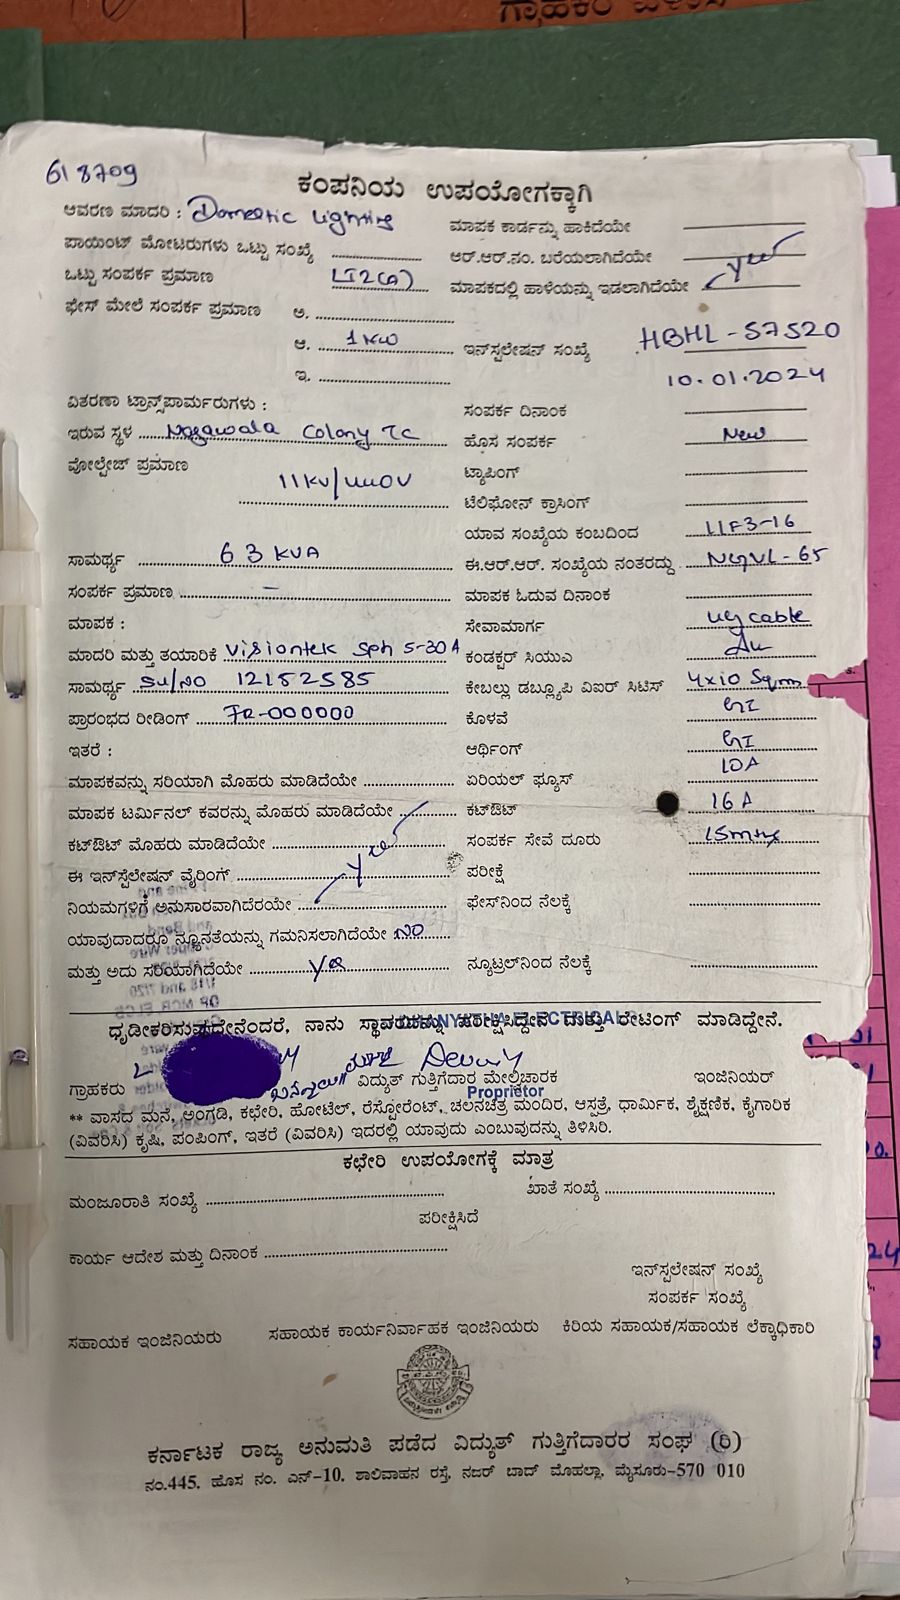 ಗ್ರಾಹಕರ
618709
ಕಂಪನಿಯ ಉಪಯೋಗಕ್ಕಾಗಿ
ಆವರಣ ಮಾದರಿ : Domestic Lighting
ಮಾಪಕ ಕಾರ್ಡನ್ನು ಹಾಕಿದೆಯೇ
ಪಾಯಿಂಟ್ ಮೋಟರುಗಳು ಒಟ್ಟು ಸಂಖ್ಯೆ
ಆರ್.ಆರ್.ನಂ. ಬರೆಯಲಾಗಿದೆಯೇ
ಒಟ್ಟು ಸಂಪರ್ಕ ಪ್ರಮಾಣ LT2(a)
ಮಾಪಕದಲ್ಲಿ ಹಾಳೆಯನ್ನು ಇಡಲಾಗಿದೆಯೇ yes
ಫೇಸ್ ಮೇಲೆ ಸಂಪರ್ಕ ಪ್ರಮಾಣ ಅ.
ಆ. 1 KW
ಇನ್‌ಸ್ಟಲೇಷನ್ ಸಂಖ್ಯೆ HBHL-57520
ಇ.
10.01.2024
ವಿತರಣಾ ಟ್ರಾನ್ಸ್‌ಪಾರ್ಮರುಗಳು :
ಸಂಪರ್ಕ ದಿನಾಂಕ
ಇರುವ ಸ್ಥಳ Nagawala Colony TC
ಹೊಸ ಸಂಪರ್ಕ New
ವೋಲ್ಟೇಜ್ ಪ್ರಮಾಣ 11KV/440V
ಟ್ಯಾಪಿಂಗ್
ಟೆಲಿಫೋನ್ ಕ್ರಾಸಿಂಗ್
ಯಾವ ಸಂಖ್ಯೆಯ ಕಂಬದಿಂದ LLF3-16
ಸಾಮರ್ಥ್ಯ 63 KVA
ಈ.ಆರ್.ಆರ್. ಸಂಖ್ಯೆಯ ನಂತರದ್ದು NGVL-65
ಸಂಪರ್ಕ ಪ್ರಮಾಣ -
ಮಾಪಕ ಓದುವ ದಿನಾಂಕ
ಮಾಪಕ :
ಸೇವಾಮಾರ್ಗ ug cable
ಮಾದರಿ ಮತ್ತು ತಯಾರಿಕೆ Visiontek Sph 5-30A
ಕಂಡಕ್ಟರ್ ಸಿಯುಎ
ಸಾಮರ್ಥ್ಯ Sl/NO 12152585
ಕೇಬಲ್ಲು ಡಬ್ಲ್ಯೂಪಿ ವಿಐರ್ ಸಿಟಿಸ್ 4x10 Sqmm
ಪ್ರಾರಂಭದ ರೀಡಿಂಗ್ FR-000000
ಕೊಳವೆ GI
ಇತರೆ :
ಆರ್ಥಿಂಗ್ GI
ಮಾಪಕವನ್ನು ಸರಿಯಾಗಿ ಮೊಹರು ಮಾಡಿದೆಯೇ
ಏರಿಯಲ್ ಫ್ಯೂಸ್ 10A
ಮಾಪಕ ಟರ್ಮಿನಲ್ ಕವರನ್ನು ಮೊಹರು ಮಾಡಿದೆಯೇ
ಕಟ್‌ಔಟ್ 16A
ಕಟ್‌ಔಟ್ ಮೊಹರು ಮಾಡಿದೆಯೇ
ಸಂಪರ್ಕ ಸೇವೆ ದೂರು 15mtrs
ಈ ಇನ್‌ಸ್ಟೆಲೇಷನ್ ವೈರಿಂಗ್ yes
ಪರೀಕ್ಷೆ
ನಿಯಮಗಳಿಗೆ ಅನುಸಾರವಾಗಿದೆರೆಯೇ
ಫೇಸ್‌ನಿಂದ ನೆಲಕ್ಕೆ
ಯಾವುದಾದರೂ ನ್ಯೂನತೆಯನ್ನು ಗಮನಿಸಲಾಗಿದೆಯೇ NO
ಮತ್ತು ಅದು ಸರಿಯಾಗಿದೆಯೇ Yes
ನ್ಯೂಟ್ರಲ್‌ನಿಂದ ನೆಲಕ್ಕೆ
ಧೃಡೀಕರಿಸುವುದೇನೆಂದರೆ, ನಾನು ಸ್ಥಾವರವನ್ನು ಪರೀಕ್ಷಿಸಿದ್ದೇನೆ ಮತ್ತು ರೇಟಿಂಗ್ ಮಾಡಿದ್ದೇನೆ.
ELECTRICAL
ಗ್ರಾಹಕರು
ವಿದ್ಯುತ್ ಗುತ್ತಿಗೆದಾರ ಮೇಲ್ವಿಚಾರಕ
ಇಂಜಿನಿಯರ್
Proprietor
** ವಾಸದ ಮನೆ, ಅಂಗಡಿ, ಕಛೇರಿ, ಹೋಟೆಲ್, ರೆಸ್ಟೋರೆಂಟ್, ಚಲನಚಿತ್ರ ಮಂದಿರ, ಆಸ್ಪತ್ರೆ, ಧಾರ್ಮಿಕ, ಶೈಕ್ಷಣಿಕ, ಕೈಗಾರಿಕ
(ವಿವರಿಸಿ) ಕೃಷಿ, ಪಂಪಿಂಗ್, ಇತರೆ (ವಿವರಿಸಿ) ಇದರಲ್ಲಿ ಯಾವುದು ಎಂಬುವುದನ್ನು ತಿಳಿಸಿರಿ.
ಕಛೇರಿ ಉಪಯೋಗಕ್ಕೆ ಮಾತ್ರ
ಮಂಜೂರಾತಿ ಸಂಖ್ಯೆ
ಖಾತೆ ಸಂಖ್ಯೆ
ಪರೀಕ್ಷಿಸಿದೆ
ಕಾರ್ಯ ಆದೇಶ ಮತ್ತು ದಿನಾಂಕ
ಇನ್‌ಸ್ಟಲೇಷನ್ ಸಂಖ್ಯೆ
ಸಂಪರ್ಕ ಸಂಖ್ಯೆ
ಸಹಾಯಕ ಇಂಜಿನಿಯರು
ಸಹಾಯಕ ಕಾರ್ಯನಿರ್ವಾಹಕ ಇಂಜಿನಿಯರು
ಕಿರಿಯ ಸಹಾಯಕ/ಸಹಾಯಕ ಲೆಕ್ಕಾಧಿಕಾರಿ
ಕರ್ನಾಟಕ ರಾಜ್ಯ ಅನುಮತಿ ಪಡೆದ ವಿದ್ಯುತ್ ಗುತ್ತಿಗೆದಾರರ ಸಂಘ (ರಿ)
ನಂ.445, ಹೊಸ ನಂ. ಎನ್-10, ಶಾಲಿವಾಹನ ರಸ್ತೆ, ನಜರ್ ಬಾದ್ ಮೊಹಲ್ಲಾ, ಮೈಸೂರು-570 010